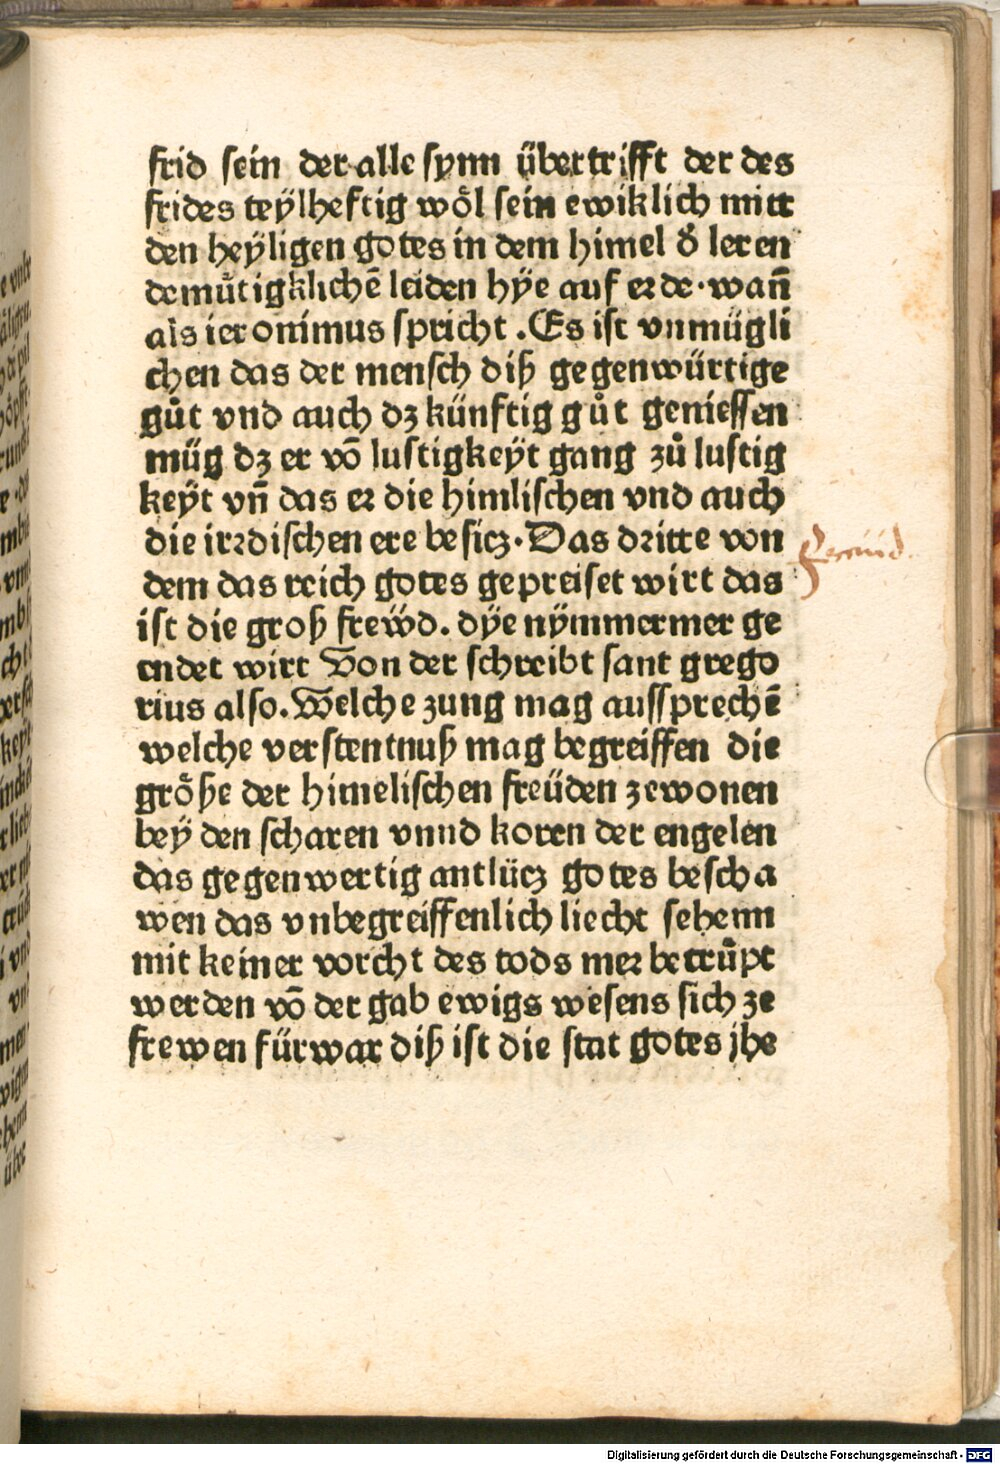 frid sein der alle synn übertrifft der des
frides teÿlheftig wo᷎l sein ewiklich mitt
den heÿligen gotes in dem himel d᷎ leren
demůtigklichē leiden hÿe auf erde·wan̄
als ieronimus spricht .Es ist vnmügli
chen das der mensch diß gegenwürtige
gůt vnd auch dz künftig gůt geniessen
müg dz er vō lustigkeÿt gang zů lustig
keÿt vn̄ das er die himlischen vnd auch
die irrdischen ere besicz·Das dritte von
dem das reich gotes gepreiset wirt das
ist die groß frew̎d. dÿe nÿmmermer ge
endet wirt Von der schreibt sant grego
rius also.Welche zung mag aussprechē
welche verstentnuß mag begreiffen die
größe der himelischen freüden zewonen
beÿ den scharen vnnd koren der engelen
das gegenwertig antlücz gotes bescha
wen das vnbegreiffenlich liecht sehenn
mit keiner vorcht des tods mer betrůpt
werden vō der gab ewigs wesens sich ze
frewen fürwar diß ist die stat gotes jhe
Digitalisierung gefördert durch die Deutsche Forschungsgemeinschaft - DFG